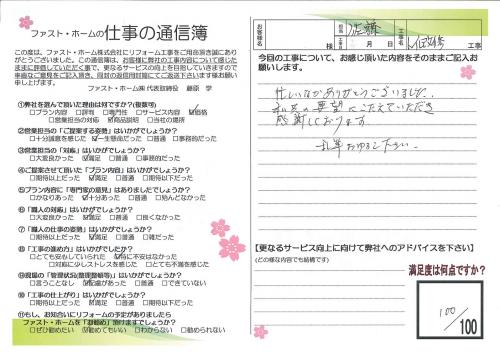 ファスト・ホームの仕事の通信簿
この度は、ファスト・ホーム株式会社にリフォーム工事をご用命頂き誠にあり
がとうございました。この通信簿は、お客様に弊社の工事内容について感じた
ままに評価していただく事で、更なるサービスの向上を目指していきますので
率直なご意見をご記入頂き、同封の返信用封筒にてご返送下さいます様お願い
申し上げます。
ファスト・ホーム㈱ 代表取締役 藤原 学
①弊社を選んで頂いた理由は何ですか?(複数可)
□プラン内容 □評判 □専門性 □サービス内容 ☑価格
□営業担当の対応 □商品説明 □当社の環境
②営業担当の「ご提案する姿勢」はいかがでしょうか?
□十分誠意を感じた ☑一生懸命だった □普通 □事務的だった
③営業担当の「対応」はいかがでしょうか?
□大変良かった ☑満足 □普通 □事務的だった
④ご提案させて頂いた「プラン内容」はいかがでしょうか?
□期待以上だった ☑満足 □普通 □期待以下だった
⑤プラン内容に「専門家の意見」はありましたでしょうか?
□かなりあった ☑十分あった □普通 □殆んどなかった
⑥「職人の対応」はいかがでしょうか?
□大変良かった ☑満足 □普通 □良くなかった
⑦「職人の仕事の姿勢」はいかがでしょうか?
□期待以上だった ☑満足 □普通 □雑だった
⑧「工事の進め方」はいかがでしたか?
□とても安心していられた ☑特に不安はなかった
□対応に少しストレスを感じた □とても不満を感じた
⑨現場の「管理状況(整理整頓等)」はいかがでしょうか?
□言うことなし ☑配慮があった □普通 □できていない
⑩「工事の仕上がり」はいかがでしょうか?
□期待以上だった ☑満足 □普通 □期待以下だった
⑪もし、お知合いにリフォームの予定がありましたら
ファスト・ホームを「お勧め」頂けますでしょうか?
□ぜひ勧めたい ☑勧めてもいい □わからない □勧められない
お客様名 様
佐藤
月 日
工事
今回の工事について、お感じ頂いた内容をそのままご記入お
願いします。
忙しい中ありがとうございました。
私共の要望にこたえていただき
感謝しております
乱筆おゆるし下さい。
【更なるサービス向上に向けて弊社へのアドバイスを下さい】
(どの様な内容でも結構です)
満足度は何点ですか?
100/100
/100